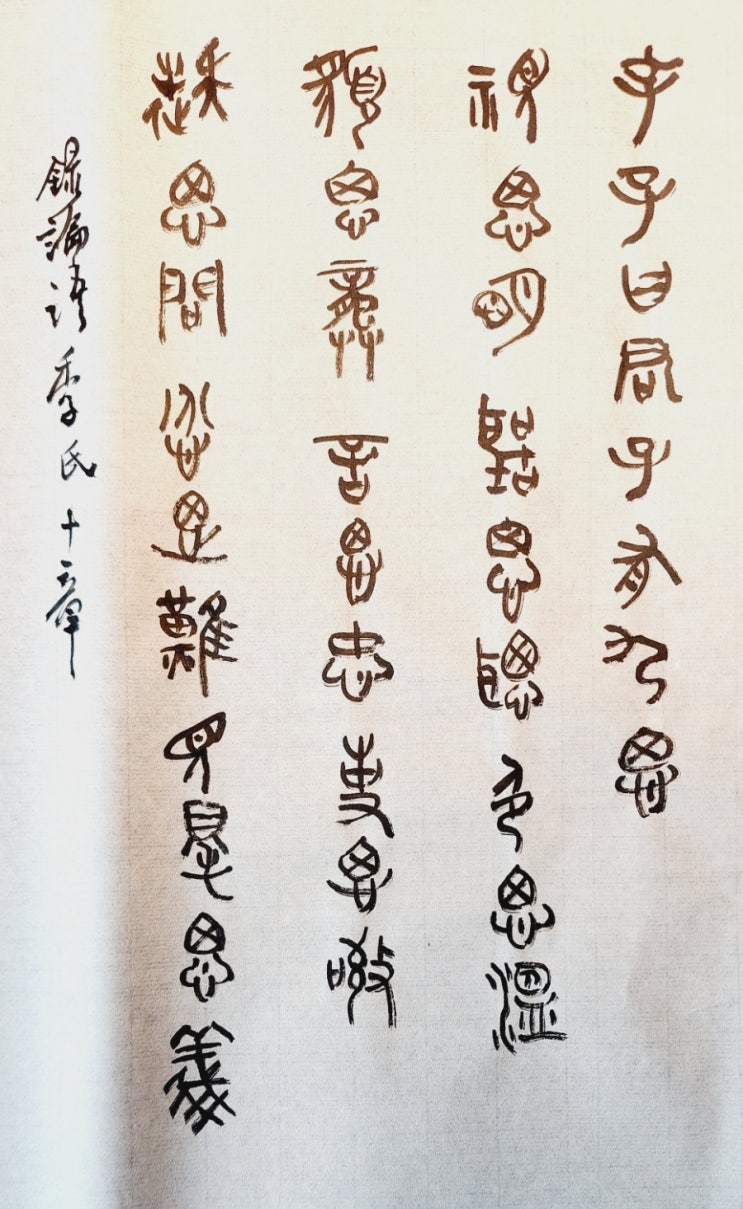 孔子曰君子有九思
視思明聽思聰色思溫
貌思恭言思忠事思敬
疑思問忿思難見得思義
錄論語季氏十章